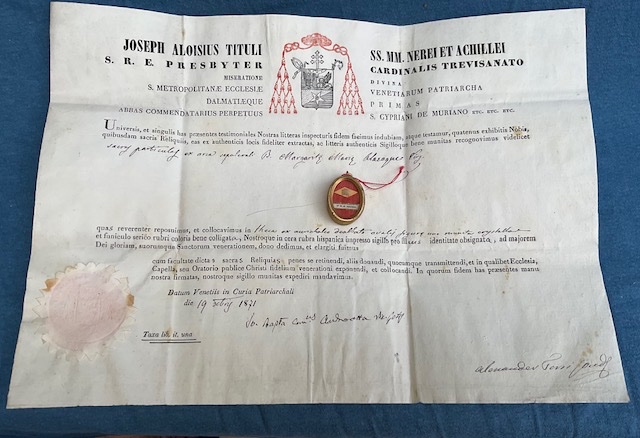 JOSEPH ALOISIUS TITULI SS. MM. NEREI ET ACHILLEI
S. R. E. PRESBYTER CARDINALIS TREVISANATO
MISERATIONE DIVINA
S. METROPOLITANÆ ECCLESIÆ VENETIARUM PATRIARCHA
DALMATIÆQUE PRIMAS
ABBAS COMMENDATARIUS PERPETUUS S. CYPRIANI DE MURIANO ETC. ETC. ETC.
Universis, et singulis has præsentes testimoniales Nostras litteras inspecturis fidem facimus indubiam, atque testamur, quatenus exhibitis Nobis,
quibusdam sacris Reliquiis, eas authenticis locis fideliter extractas, ac litteris authenticis Sigilloque bene munitas recognovimus videlicet
sacras particulas ex B. Margarita Maria Alacoque
quas reverenter reposuimus, et collocavimus in theca ex ovalis crystallo
et funiculo serico rubri coloris bene colligatas, Nostroque in cera rubra hispanica impresso sigillo pro illius identitate obsignatas, ad majorem
Dei gloriam, suorumque Sanctorum venerationem, dono dedimus, et elargiti fuimus
cum facultate dictas sacras Reliquias penes se retinendi, aliis donandi, quocumque transmittendi, et in qualibet Ecclesia,
Capella, seu Oratorio publice Christi fidelium venerationi exponendi, et collocandi. In quorum fidem has præsentes manu
nostra firmatas, nostroque sigillo munitas expediri mandavimus.
Datum Venetiis in Curia Patriarchali
die 19 1871
Jo. Bapta
Taxa lib. it. una
Alexander